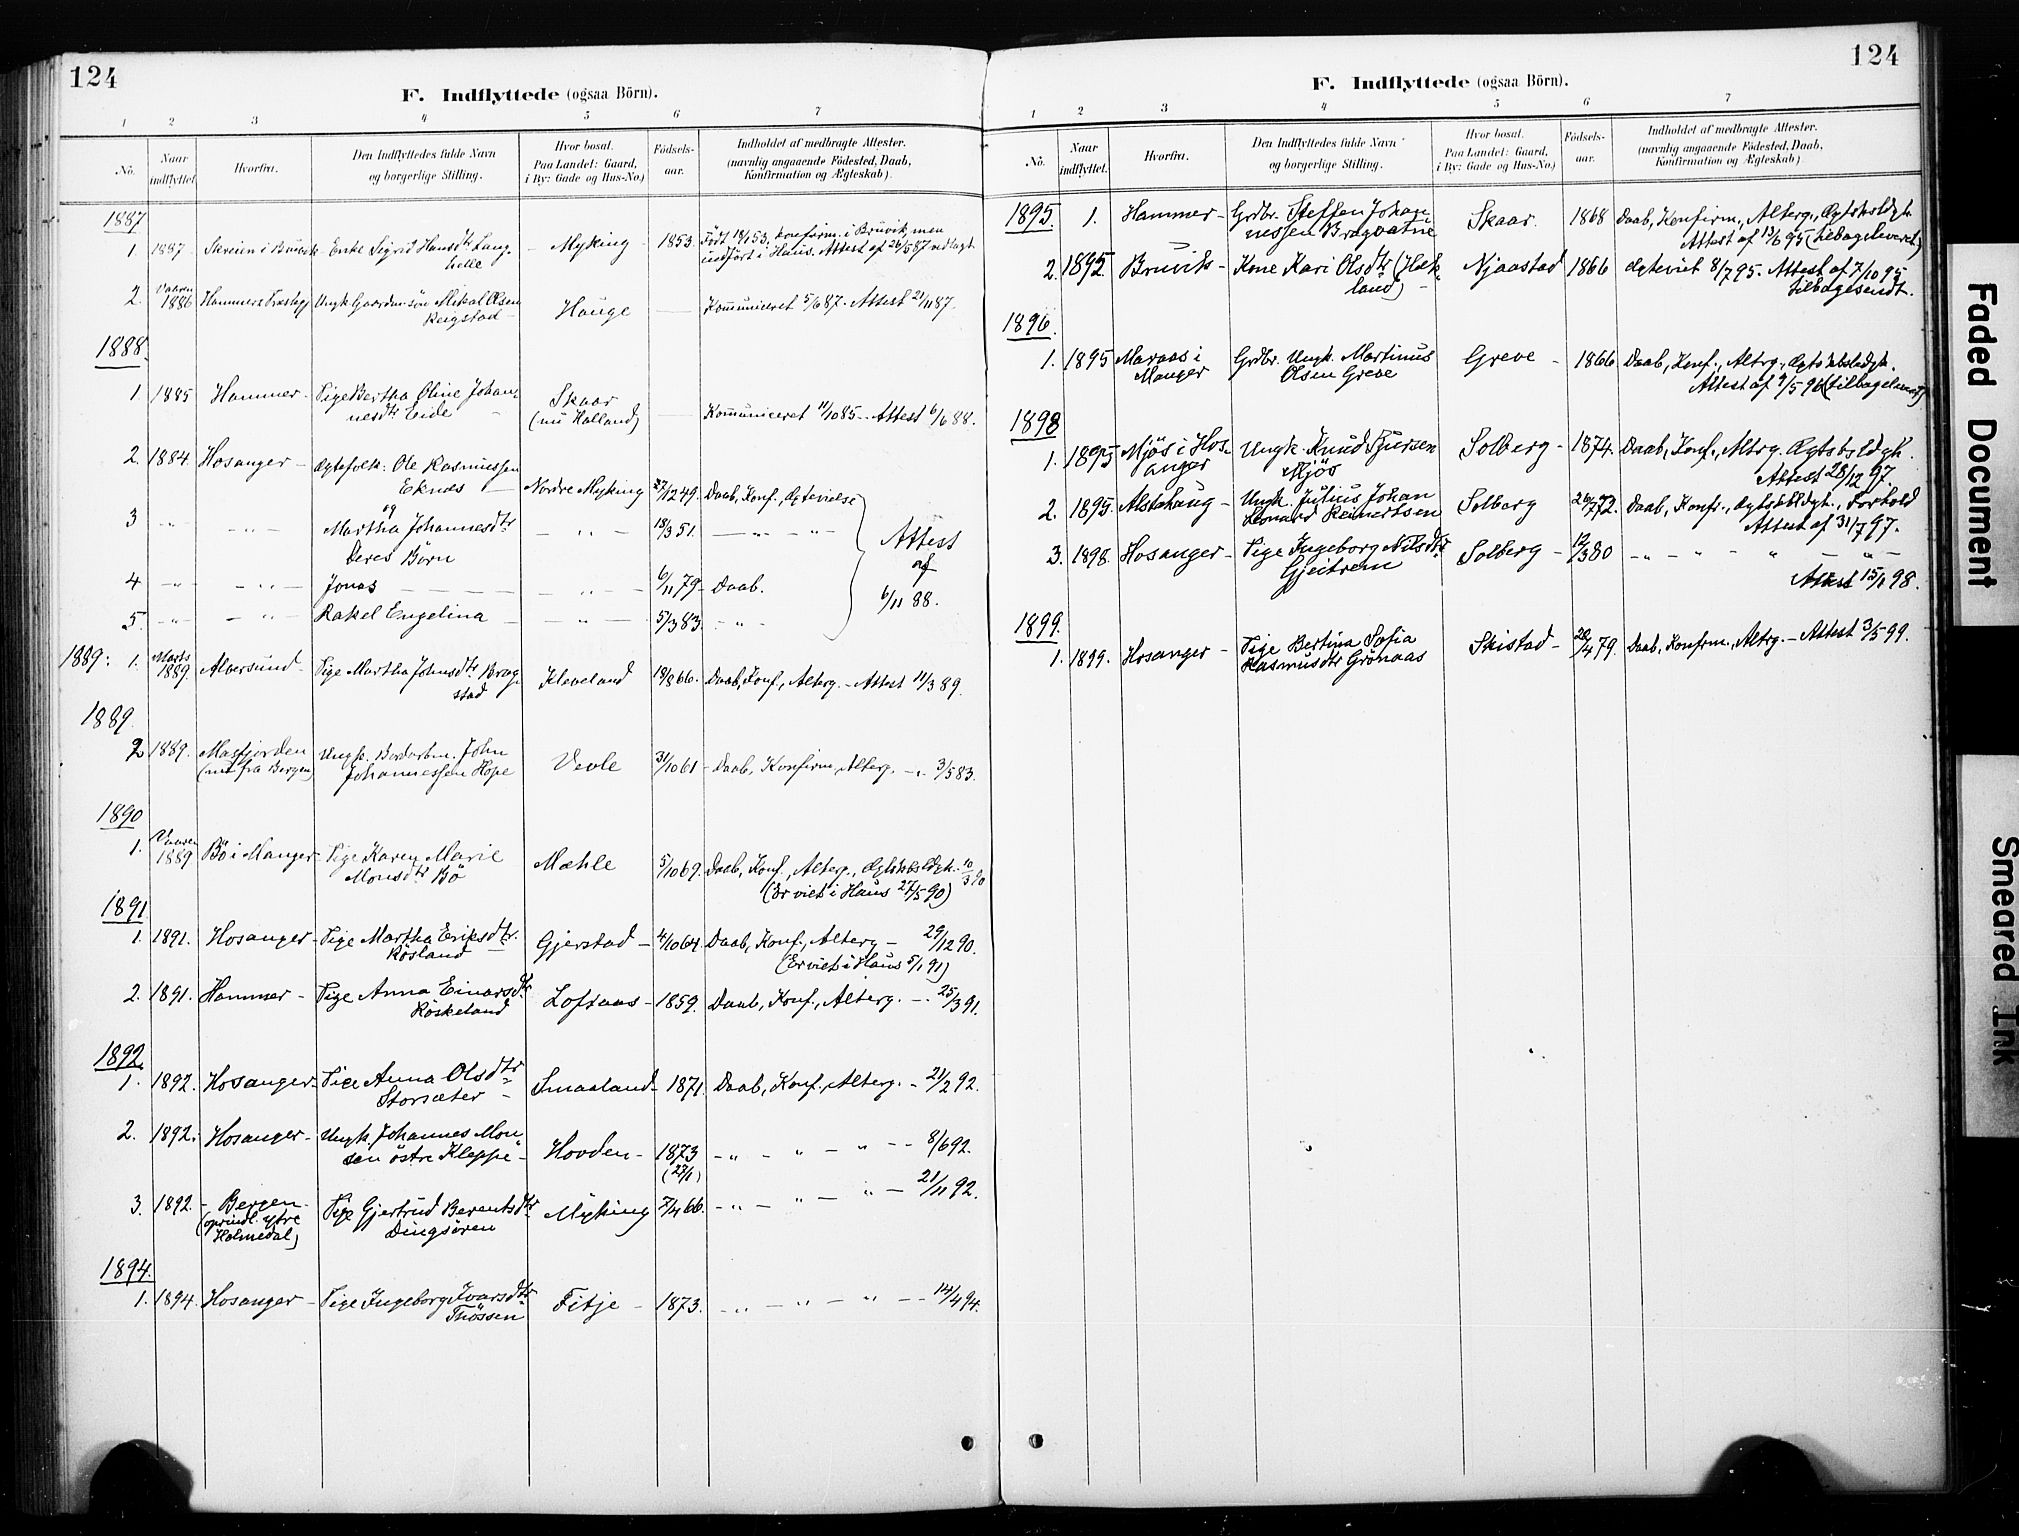 124
F. Indflyttede (ogsaa Börn).
1 2 3 4 5 6 7
No. Naar indflyttet. Hvorfra. Den Indflyttedes fulde Navn og borgerlige Stilling. Hvor bosat. Paa Landet: Gaard, i By: Gade og Hus-No.) Födsels-aar. Indholdet af medbragte Attester. (navnlig angaaende Födested, Daab, Konfirmation og Ægteskab).
1887
1. 1887 Skreien i Bruvik - Enke Sigrid Hansdtr Lang- - Myking - 1853. Födt 18/1 53, konfirm. i Bruvik, men
helle udfört i Haus. Attest af 26/5 87 vedlagt.
2. Vaaren 1886 Hammers Præstegj Ungk. Gaardmrsön Mikal Olsen Hauge - Kommuniceret 5/6 87. Attest 21/11 87.
Reigstad -
1888.
1. 1885 Hammer - Pige Bertha Oline Johan- Skaar
nesdtr Eide - (nu Halland) - Kommuniceret 11/10 85 - Attest 6/6 88.
2. 1884. Hosanger - Ægtefolk: Ole Rasmussen
Eknæs - Nordre Myking 27/12 49. Daab, Konf., Ægtevielse
3 - „ - - „ - og Martha Johannesdtr - „ - 18/3 51. - „ - „ - Attest
Deres Börn af
4 - „ - - „ - Jonas - „ - 6/11 79 - Daab. 6/11 88.
5. - „ - - „ - Rakel Engelina - - „ - 5/3 83. - „ -
1889: 1. Marts 1889. Alversund - Pige Martha Johnsdtr Brag- Kleveland 19/8 66. Daab, Konf., Alterg. - Attest 11/3 89.
stad
1889.
2 1889. Masfjorden Ungk. John Vevle 31/10 61 - Daab, Konfirm, Alterg. - „ 3/5 83.
(nu fra Bergen) Johannessen Hope
1890
1. Vaaren 1889 Bö i Manger - Pige Karen Marie Mæhle 5/10 69. Daab, Konf., Alterg., Ægtskbsldgh. 10/3 90
Monsdtr Bö (Er viet i Haus 27/5 90)
1891
1. 1891. Hosanger - Pige Martha Eriksdtr. Gjerstad - 4/10 64. Daab, Konf., Alterg - 29/12 90.
Rösland - (Er viet i Haus 5/1 91)
2. 1891. Hammer - Pige Anna Einarsdtr Loftaas - 1859. Daab, Konf., Alterg. - 25/3 91.
Röskeland
1892.
1. 1892. Hosanger - Pige Anna Olsdtr Smaaland - 1871. Daab, Konf., Alterg. - 21/2 92.
Storsæter -
2. 1892. Hosanger - Ungk. Johannes Mon-
sen östre Kleppe - Hovden - 1873 - „ - „ - „ - - 8/6 92.
(27/1)
3. 1892. - Bergen - Pige Gjertrud Berentsdtr Myking 7/4 66. - „ - „ - „ - 21/11 92.
(oprindl. ytre Holmedal) Dingsören
1894.
1. 1894. Hosanger - Pige Ingeborg Ivarsdtr Fitje - 1873. - „ - „ - „ - - 14/4 94.
Tössen
124
F. Indflyttede (ogsaa Börn).
1 2 3 4 5 6 7
No. Naar indflyttet. Hvorfra. Den Indflyttedes fulde Navn og borgerlige Stilling. Hvor bosat. Paa Landet: Gaard, i By: Gade og Hus-No.) Födsels-aar. Indholdet af medbragte Attester. (navnlig angaaende Födested, Daab, Konfirmation og Ægteskab).
1895. 1. Hammer - Grdbr. Steffen Johan- Skaar. 1868 Daab, Konfirm., Alterg., Ægtskbsldgh.
nessen Bragvatne Attest af 13/6 95 (tilbageleveret)
2. 1895 Bruvik - Kone Kari Olsdtr (Hæk- Njaastad 1866 Ægteviet 8/7 95. Attest af 7/10 95
land) - tilbagesendt.
1896.
1. 1895 Maraas i Grdbr. Ungk. Martinus Greve - 1866 Daab, Konf., Altrg., Ægtskbsledgh.
Manger Olsen Greve Attest af 9/5 96 (tilbageleveret)
1898
1. 1895 Mjös i Hos- Ungk. Knud Sjursen Solberg - 1874. Daab, Konf., Altrg. Ægtsbsldgh.
anger Mjös Attest 28/12 97.
2. 1895. Alstahaug - Ungk. Julius Johan Solberg 26/7 72. Daab, Konfr., Ægtsbldgh., Forhold
Leonard Reinertsen Attest af 31/7 97.
3. 1898. Hosanger - Pige Ingeborg Nilsdtr Solberg - 12/3 80 - „ - „ - „ - „ -
Gjeitrem Attest 15/1 98.
1899.
1. 1899. Hosanger - Pige Bertina Sofia Skistad - 20/4 79. Daab, Konfrm., Altrg. - Attest 3/5 99.
Rasmusdtr Grönaas
Faded Document
Smeared Ink